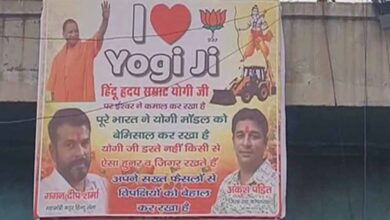 I ❤
Yogi Ji
हिंदू हृदय सम्राट योगी जी
पर ईश्वर ने कमाल कर रखा है
पूरे भारत ने योगी मॉडल को
बेमिसाल कर रखा है
योगी जी डरते नहीं किसी से
ऐसा हुनर व जिगर रखते हैं
अपने सख्त फैसलों से
विपक्षियों को बेहाल
कर रखा है
गगन दीप शर्मा
अंकश पंडित